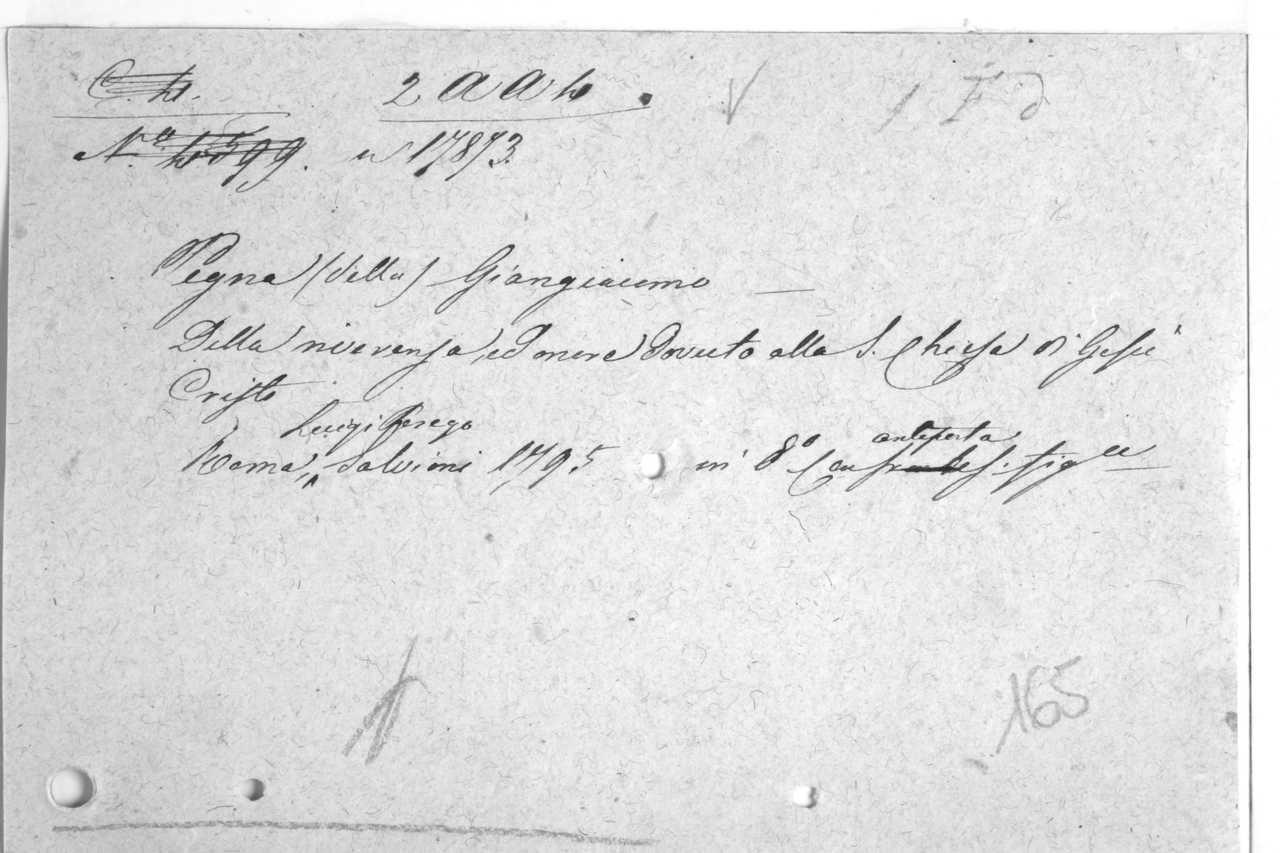 C. 4. 2 a a 4. V 1 F d
N.º 4599. n 17873.
Pegna (della) Giangiacomo —
Della riverenza, ed onore dovuto alla S. Chiesa di Gesù
Cristo
Luigi Perego antiporta
Roma, Salvioni 1795 in 8º Con fig
165